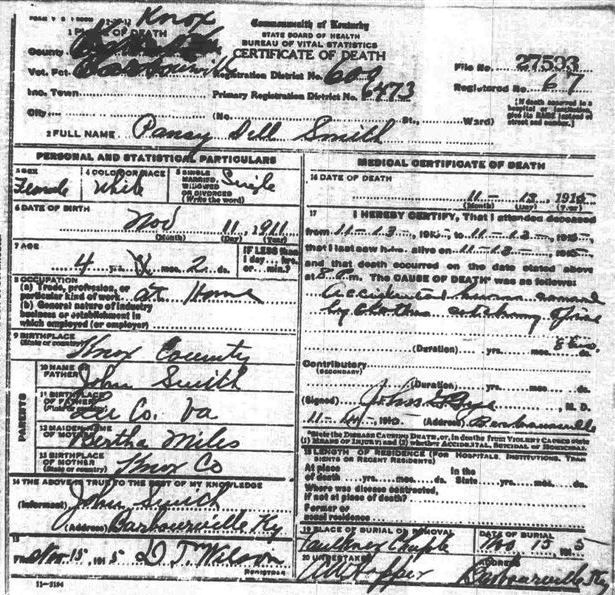 FORM V. S. 1
Knox
1 PLACE OF DEATH
Commonwealth of Kentucky
STATE BOARD OF HEALTH
BUREAU OF VITAL STATISTICS
CERTIFICATE OF DEATH
County
Vot. Pct. Barbourville
Registration District No. 609
File No. 27593
Inc. Town
Primary Registration District No. 6473
Registered No. 67
City (No. St., Ward)
[If death occurred in a hospital or institution, give its NAME instead of street and number.]
2 FULL NAME Pansy Dell Smith
PERSONAL AND STATISTICAL PARTICULARS
3 SEX
Female
4 COLOR OR RACE
White
5 SINGLE
MARRIED,
WIDOWED
OR DIVORCED
(Write the word)
Single
6 DATE OF BIRTH
Nov 11, 1911
(Month) (Day) (Year)
7 AGE
4 yrs. mos. 2 ds.
IF LESS than
1 day... hrs.
or... min.?
8 OCCUPATION
(a) Trade, profession, or
particular kind of work at Home
(b) General nature of industry
business or establishment in
which employed (or employer)
9 BIRTHPLACE
(State or country)
Knox County
PARENTS
10 NAME OF
FATHER
John Smith
11 BIRTHPLACE
OF FATHER
(State or country)
Lee Co. Va
12 MAIDEN NAME
OF MOTHER
Bertha Miles
13 BIRTHPLACE
OF MOTHER
(State or country)
Knox Co
14 THE ABOVE IS TRUE TO THE BEST OF MY KNOWLEDGE
(Informant) John Smith
(Address) Barbourville Ky
15
Filed Nov 15, 1915 D. T. Wilson
REGISTRAR
11-3194
MEDICAL CERTIFICATE OF DEATH
16 DATE OF DEATH
11-13, 1915
(Month) (Day) (Year)
17
I HEREBY CERTIFY, That I attended deceased
from 11-13, 1915, to 11-13, 1915,
that I last saw h alive on 11-13, 1915,
and that death occurred on the date stated above
at 8 P.m. The CAUSE OF DEATH* was as follows:
Accidental burns caused
by clothes catching fire
(Duration) yrs. mos. ds.
8 hrs.
Contributory
(SECONDARY)
(Duration) yrs. mos. ds.
(Signed) M. D.
11-14, 1915 (Address) Barbourville
*State the DISEASE CAUSING DEATH, or, in deaths from VIOLENT CAUSES state
(1) MEANS OF INJURY; and (2) whether ACCIDENTAL, SUICIDAL OR HOMICIDAL.
18 LENGTH OF RESIDENCE (FOR HOSPITALS, INSTITUTIONS, TRANSIENTS OR RECENT RESIDENTS)
At place
of death yrs. mos. ds.
In the
State yrs. mos. ds.
Where was disease contracted,
if not at place of death?
Former or
usual residence
19 PLACE OF BURIAL OR REMOVAL
DATE OF BURIAL
Nov 15, 1915
20 UNDERTAKER
ADDRESS
Barbourville Ky